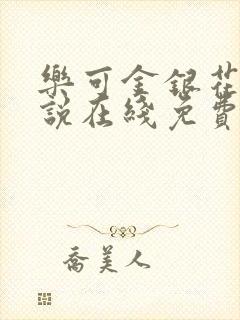 樂可金銀花
說在綫免費
喬美人